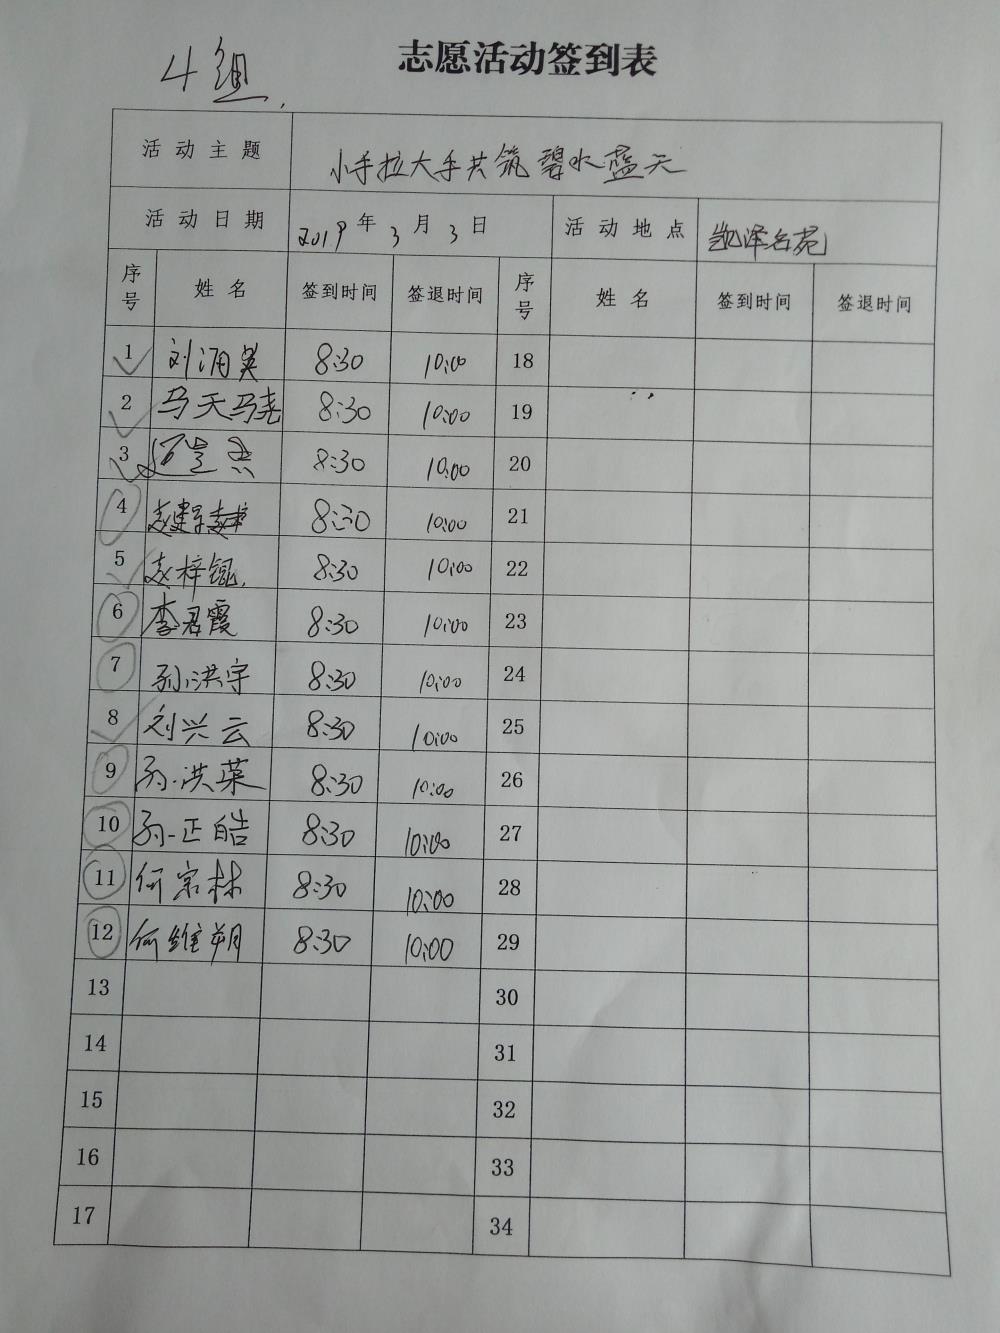 4组
志愿活动签到表
活动主题 小手拉大手共筑碧水蓝天
活动日期 2019年3月3日 活动地点 凯泽名苑
序号 姓名 签到时间 签退时间 序号 姓名 签到时间 签退时间
1 刘 8:30 10:00 18
2 马天骁 8:30 10:00 19
3 8:30 10:00 20
4 8:30 10:00 21
5 赵梓锟 8:30 10:00 22
6 李君霞 8:30 10:00 23
7 孙洪宇 8:30 10:00 24
8 刘兴云 8:30 10:00 25
9 孙洪菜 8:30 10:00 26
10 孙正皓 8:30 10:00 27
11 何宗林 8:30 10:00 28
12 何维朔 8:30 10:00 29
13 30
14 31
15 32
16 33
17 34